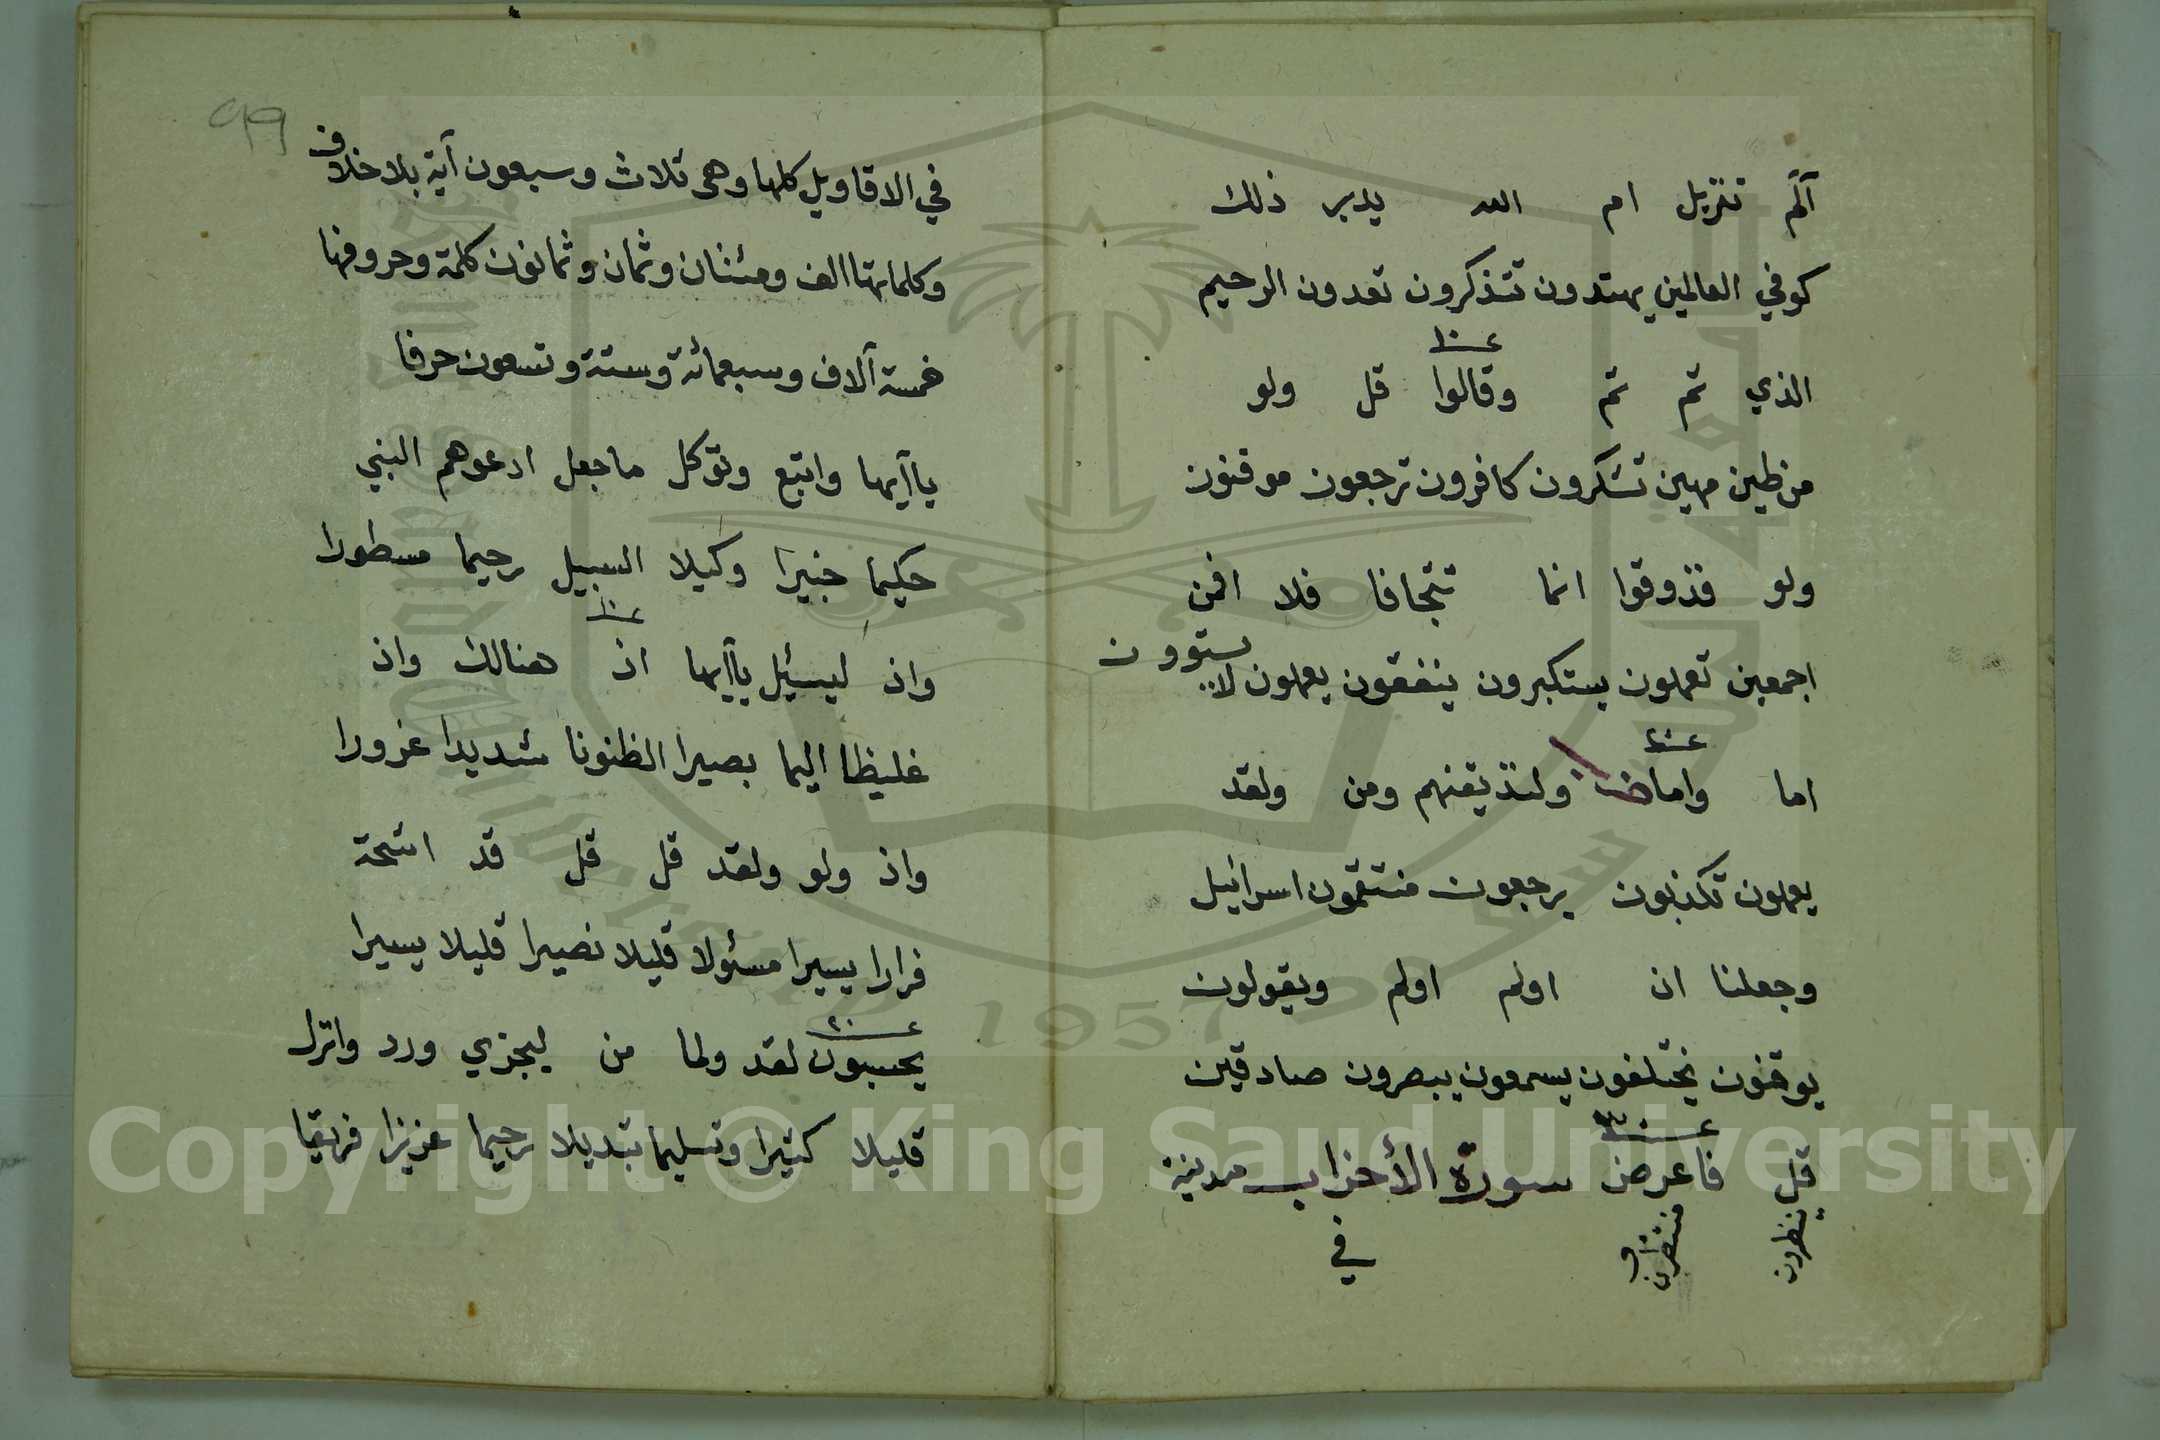 الم تنزيل ام الله يدبر ذلك
كوفي العالمين يهتدون تتذكرون تعدون الرحيم
الذي ثم ثم وقالوا قل ولو
عــ١٠
من طين مهين تشكرون كافرون ترجعون موقنون
ولو فذوقوا انما تتجافا فلا افمن
اجمعين تعملون يستكبرون ينفقون يعملون لا يستوون
اما واما ولنذيقنهم ومن ولقد
عــ٢٠
يعملون تكذبون يرجعون منتقمون اسرائيل
وجعلنا ان اولم اولم ويقولون
يوقنون يختلفون يسمعون يبصرون صادقين
قل فاعرض سورة الأحزاب مدنية
عــ٣٠
ينظرون منتظرون
في
٩٩
في الاقاويل كلها وهى ثلاث وسبعون آية بلا خلاف
وكلماتها الف ومئتان وثمان وثمانون كلمة وحروفها
خمسة آلاف وسبعمائة وستة وتسعون حرفا
ياآيها واتبع وتوكل ماجعل ادعوهم النبي
حكيما خبيرا وكيلا السبيل رحيما مسطورا
واذ ليسئل ياآيها اذ هنالك واذ
عــ١٠
غليظا اليما بصيرا الظنونا شديدا غرورا
واذ ولو ولقد قل قل قد اشحة
فرارا يسيرا مسئولا قليلا نصيرا قليلا يسيرا
يحسبون لقد ولما من ليجزي ورد وانزل
عــ٢٠
قليلا كثيرا وتسليما تبديلا رحيما عزيزا فريقا
1957
Copyright © King Saud University